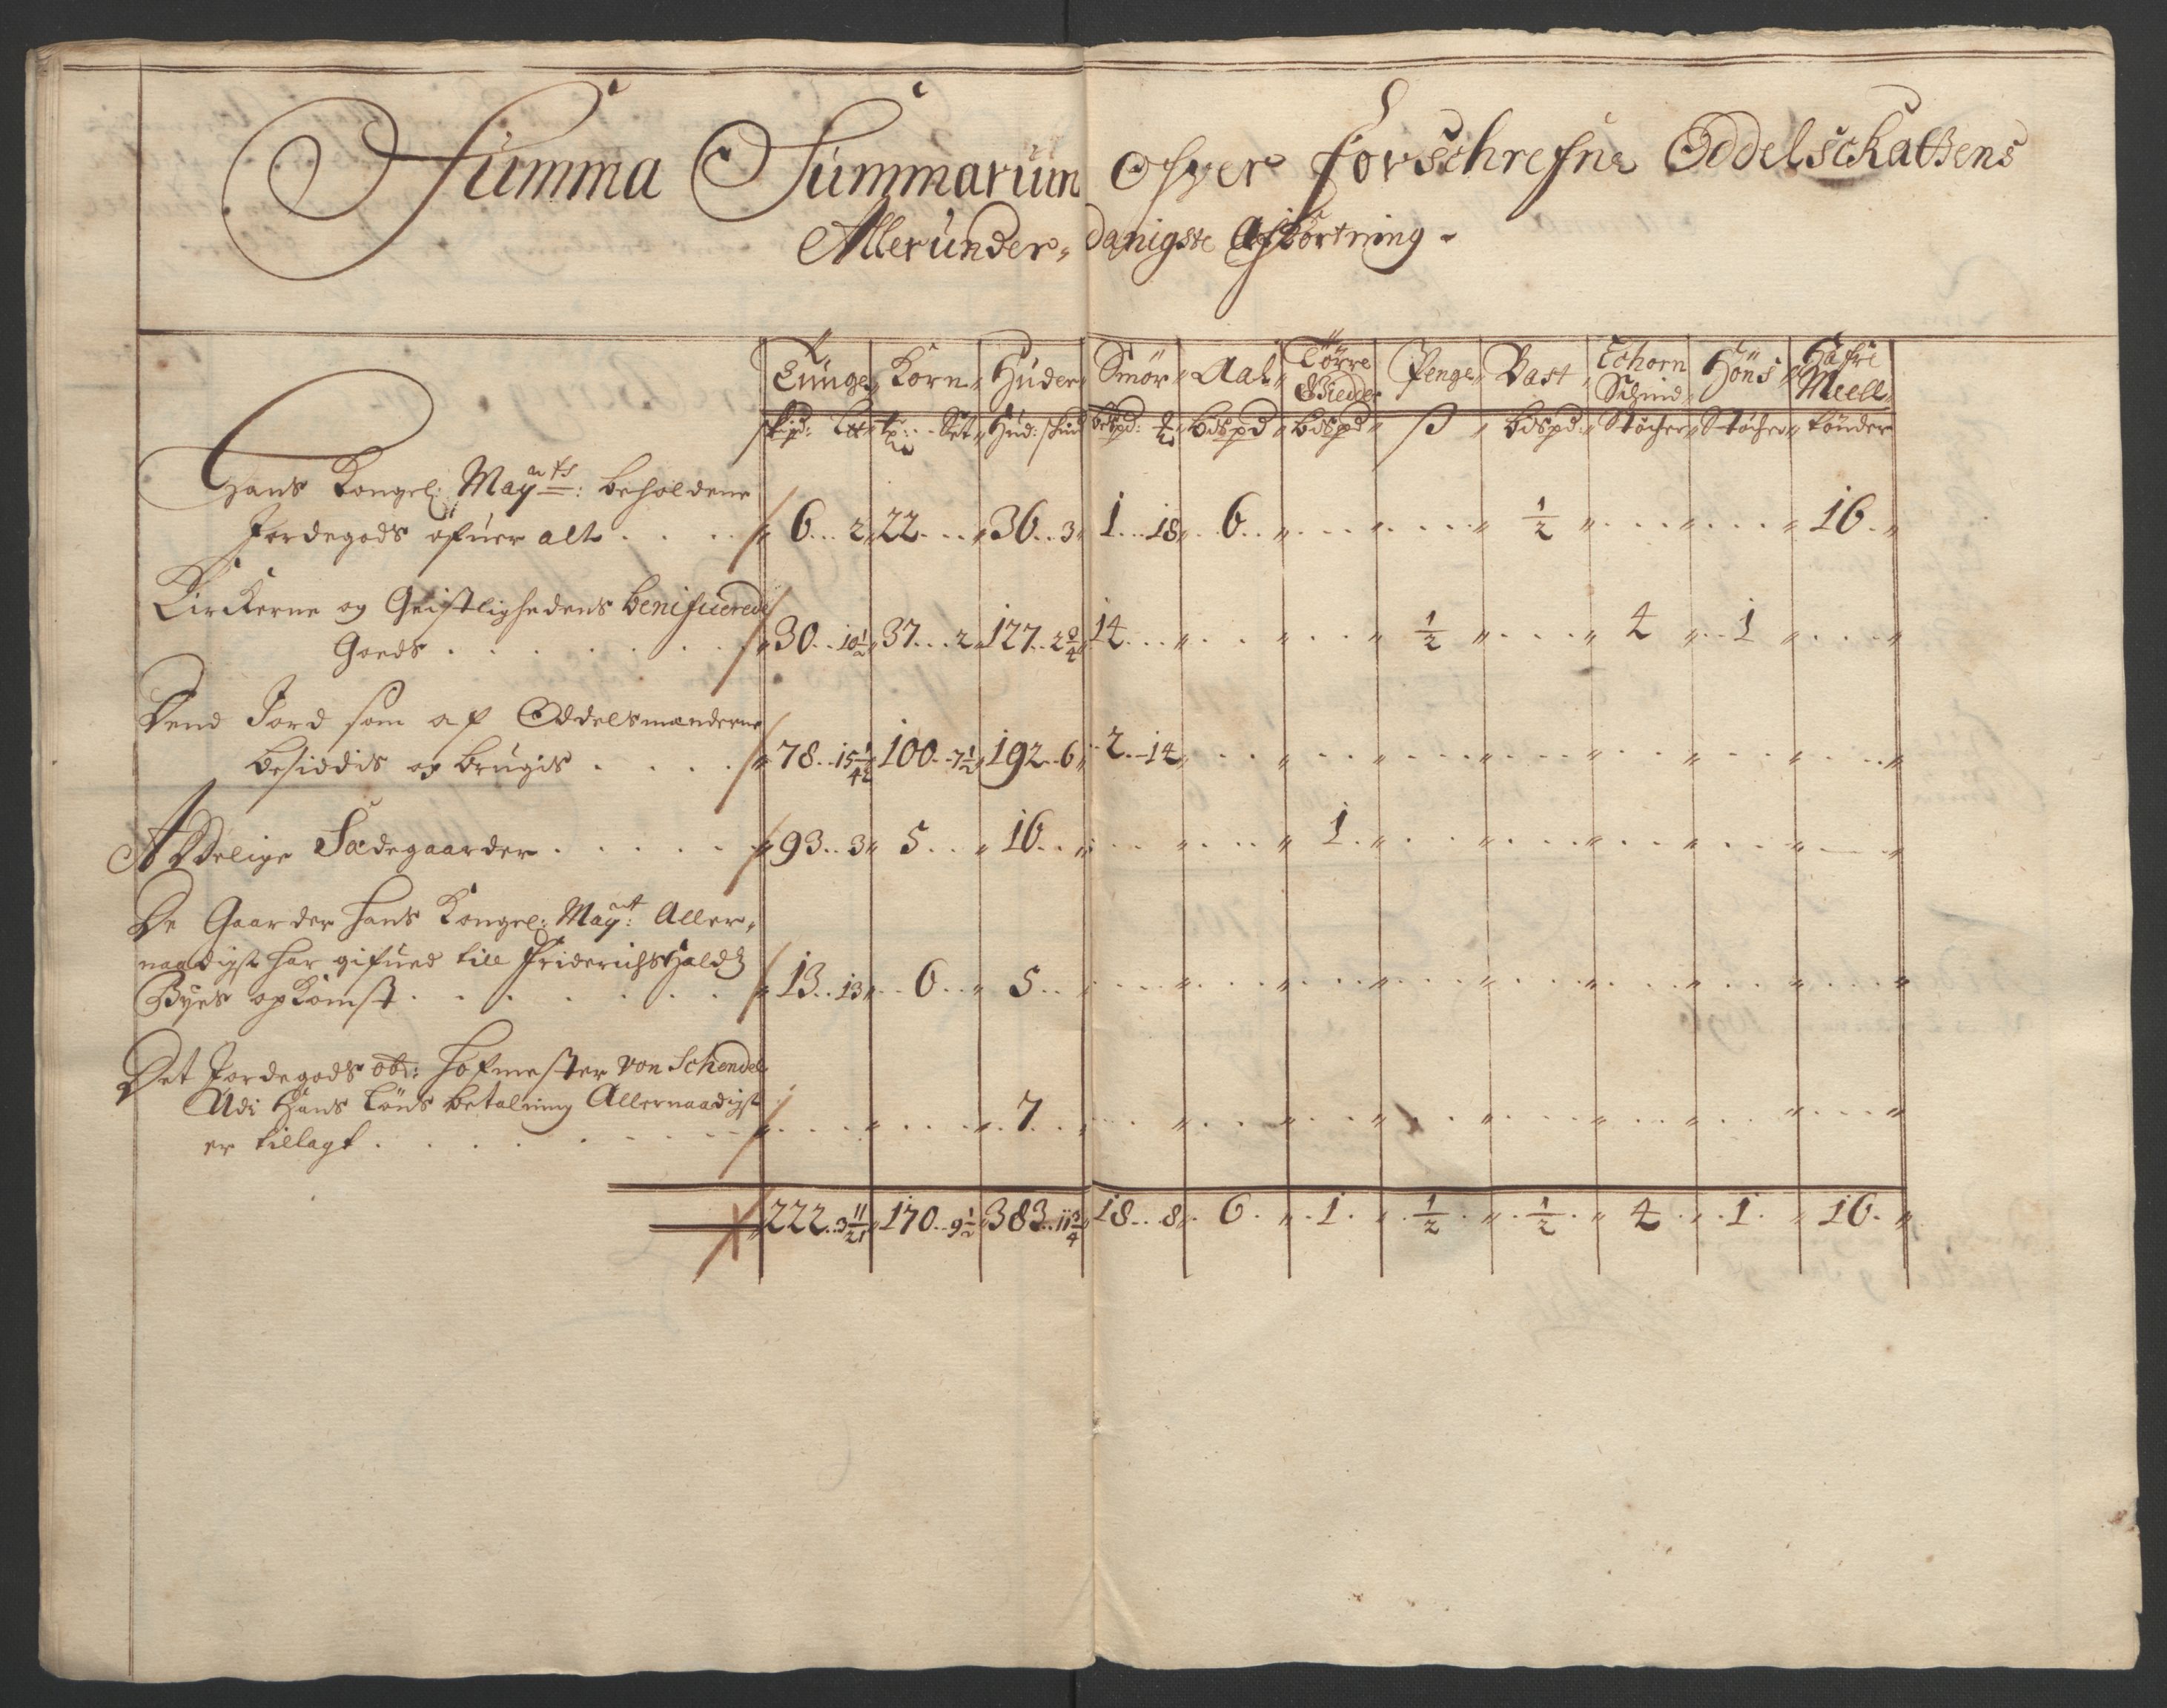 Summa Summarum Ofver forschrefne Oddelschattens
Allerunder„ danigste Afkortning
Tunge„ Korn„ Huder„ Smör„ Aal„ Törre Giedder„ Penge„ Bast„ Echorn Schind„ Höns„ Hafre Meell„
Sett„ Hud: schind bdspd„ bdspd„ ß „ bdspd„ Stöcher„ Stöcher„ tönder
Hans Kongel: Mayts: beholdene
Jordegods ofuer alt . . . . „ 6 . . . 2„ 22 . . . „ 36 . . 3„ 1 . . . 18„ . 6 . . „ . . . „ . . . „ 1/2 „ . . . „ . . . „ 16 . „
Kirckerne og Geistlighedens benifuerede
Goeds . . . . . . „ 30 . . 10 1/2„ 37 . . . 2„ 127 . . 2 3/4„ 14 . . . „ . . „ . . . „ 1/2 „ . . . „ 4 „ . . 1 „ . . . „
Dend Jord som af Oddelsmenderne
besiddis og brugis . . . . „ 78 . . 15 „ 100 . . 7 1/2„ 192 . . 6„ 2 . . 14„ . . „ . . . „ . . . „ . . . „ . . „ . . „ . . . „
Adelige Sædegaarder . . . . . „ 93 . . 3„ 5 . . . „ 16 . . „ . . . „ . . . „ 1 . „ . . . „ . . . „ . . . „ . . . „ . . . „
De Gaarder hans Kongel: Mayt: Aller„
naadigst har gifued till Friderichshalds
Byes opkomst . . . . . . . „ 13 . . 13„ . . 6 . . „ 5 . . . . . „ . . . „ . . . „ . . . „ . . . „ . . . „ . . „ . . . „
Det Jordegods Hofmester von Schendel
Udi Hans Löns betalning Allernaadigst
er tillagt . . . . . . „ . . . „ . . . „ . 7 . . „ . . „ . . . „ . . „ . . . „ . . . „ . . . „ . . . „ . . . „
222 . . 3 11/21„ 170 . . 9 1/2„ 383 . . 11 3/4„ 18 . . 8„ . 6 . „ . 1 . „ . 1/2 . „ . 1/2 . „ 4 „ . 1 . „ 16 . „